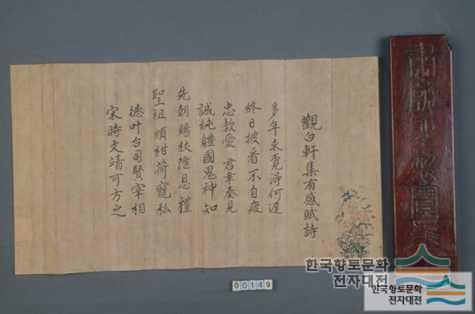 觀白軒集有感賦詩
多年來覓得何遲
終日披看不自疲
忠款愛君章奏見
誠純體國鬼神知
先朝賜杖隆恩禮
聖祖頒紺荷寵私
德叶台司賢宰相
宋時文靖可方之
00149
한국향토문화
전자대전
한국향토문화
전자대전